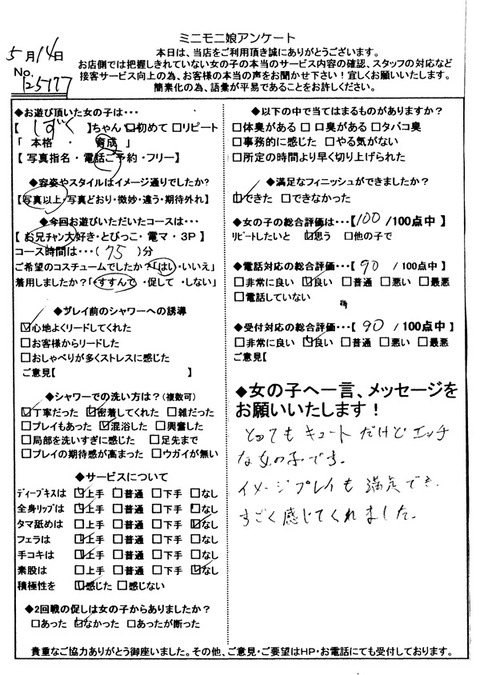 ミニモニ娘アンケート
5月14日
No. 25177
本日は、当店をご利用頂き誠にありがとうございます。
お店側では把握しきれていない女の子の本当のサービス内容の確認、スタッフの対応など
接客サービス向上の為、お客様の本当の声をお聞かせ下さい！宜しくお願いいたします。
簡素化の為、語彙が平易であることをお許しください。
◆お遊び頂いた女の子は・・・
【 しずく 】ちゃん ☑初めて □リピート
「 本格 ・ 育成 」
【 写真指名・電話ご予約・フリー】
◆容姿やスタイルはイメージ通りでしたか？
【写真以上・写真どおり・微妙・違う・期待外れ】
◆今回お遊びいただいたコースは・・・
【 お兄チャン大好き・とびっこ・電マ・3P】
コース時間は・・・( 75 )分
ご希望のコスチュームでしたか？「はい・いいえ」
着用しましたか？「すすんで ・促して ・しない」
◆プレイ前のシャワーへの誘導
☑心地よくリードしてくれた
□お客様からリードした
□おしゃべりが多くストレスに感じた
ご意見【 】
◆シャワーでの洗い方は？（複数可）
☑丁寧だった ☑密着してくれた □雑だった
□プレイもあった ☑混浴した □興奮した
□局部を洗いすぎに感じた □足先まで
□プレイの期待感が高まった □ウガイが無い
◆サービスについて
ディープキスは ☑上手 □普通 □下手 □なし
全身リップは ☑上手 □普通 □下手 □なし
タマ舐めは □上手 □普通 □下手 ☑なし
フェラは ☑上手 □普通 □下手 □なし
手コキは ☑上手 □普通 □下手 □なし
素股は □上手 □普通 □下手 ☑なし
積極性を ☑感じた □感じない
◆2回戦の促しは女の子からありましたか？
□あった ☑なかった □あったが断った
◆以下の中で当てはまるものがありますか？
□体臭がある □ 口臭がある □タバコ臭
□事務的に感じた □やる気がない
□所定の時間より早く切り上げられた
◆満足なフィニッシュができましたか？
☑できた □できなかった
◆女の子の総合評価は・・・【100 /100点中】
リピートしたいと ☑思う □他の子で
◆電話対応の総合評価・・・【 90 /100点中】
□非常に良い ☑良い □普通 □悪い □最悪
□電話していない
◆受付対応の総合評価・・・【 90 /100点中】
□非常に良い ☑良い □普通 □悪い □最悪
ご意見【
◆女の子へ一言、メッセージを
お願いいたします！
とってもキュートだけどエッチ
な女の子です。
イメージプレイも満足でき、
すごく感じてくれました。
貴重なご協力ありがとう御座いました。その他、ご意見・ご要望はHP・お電話にても受付しております。